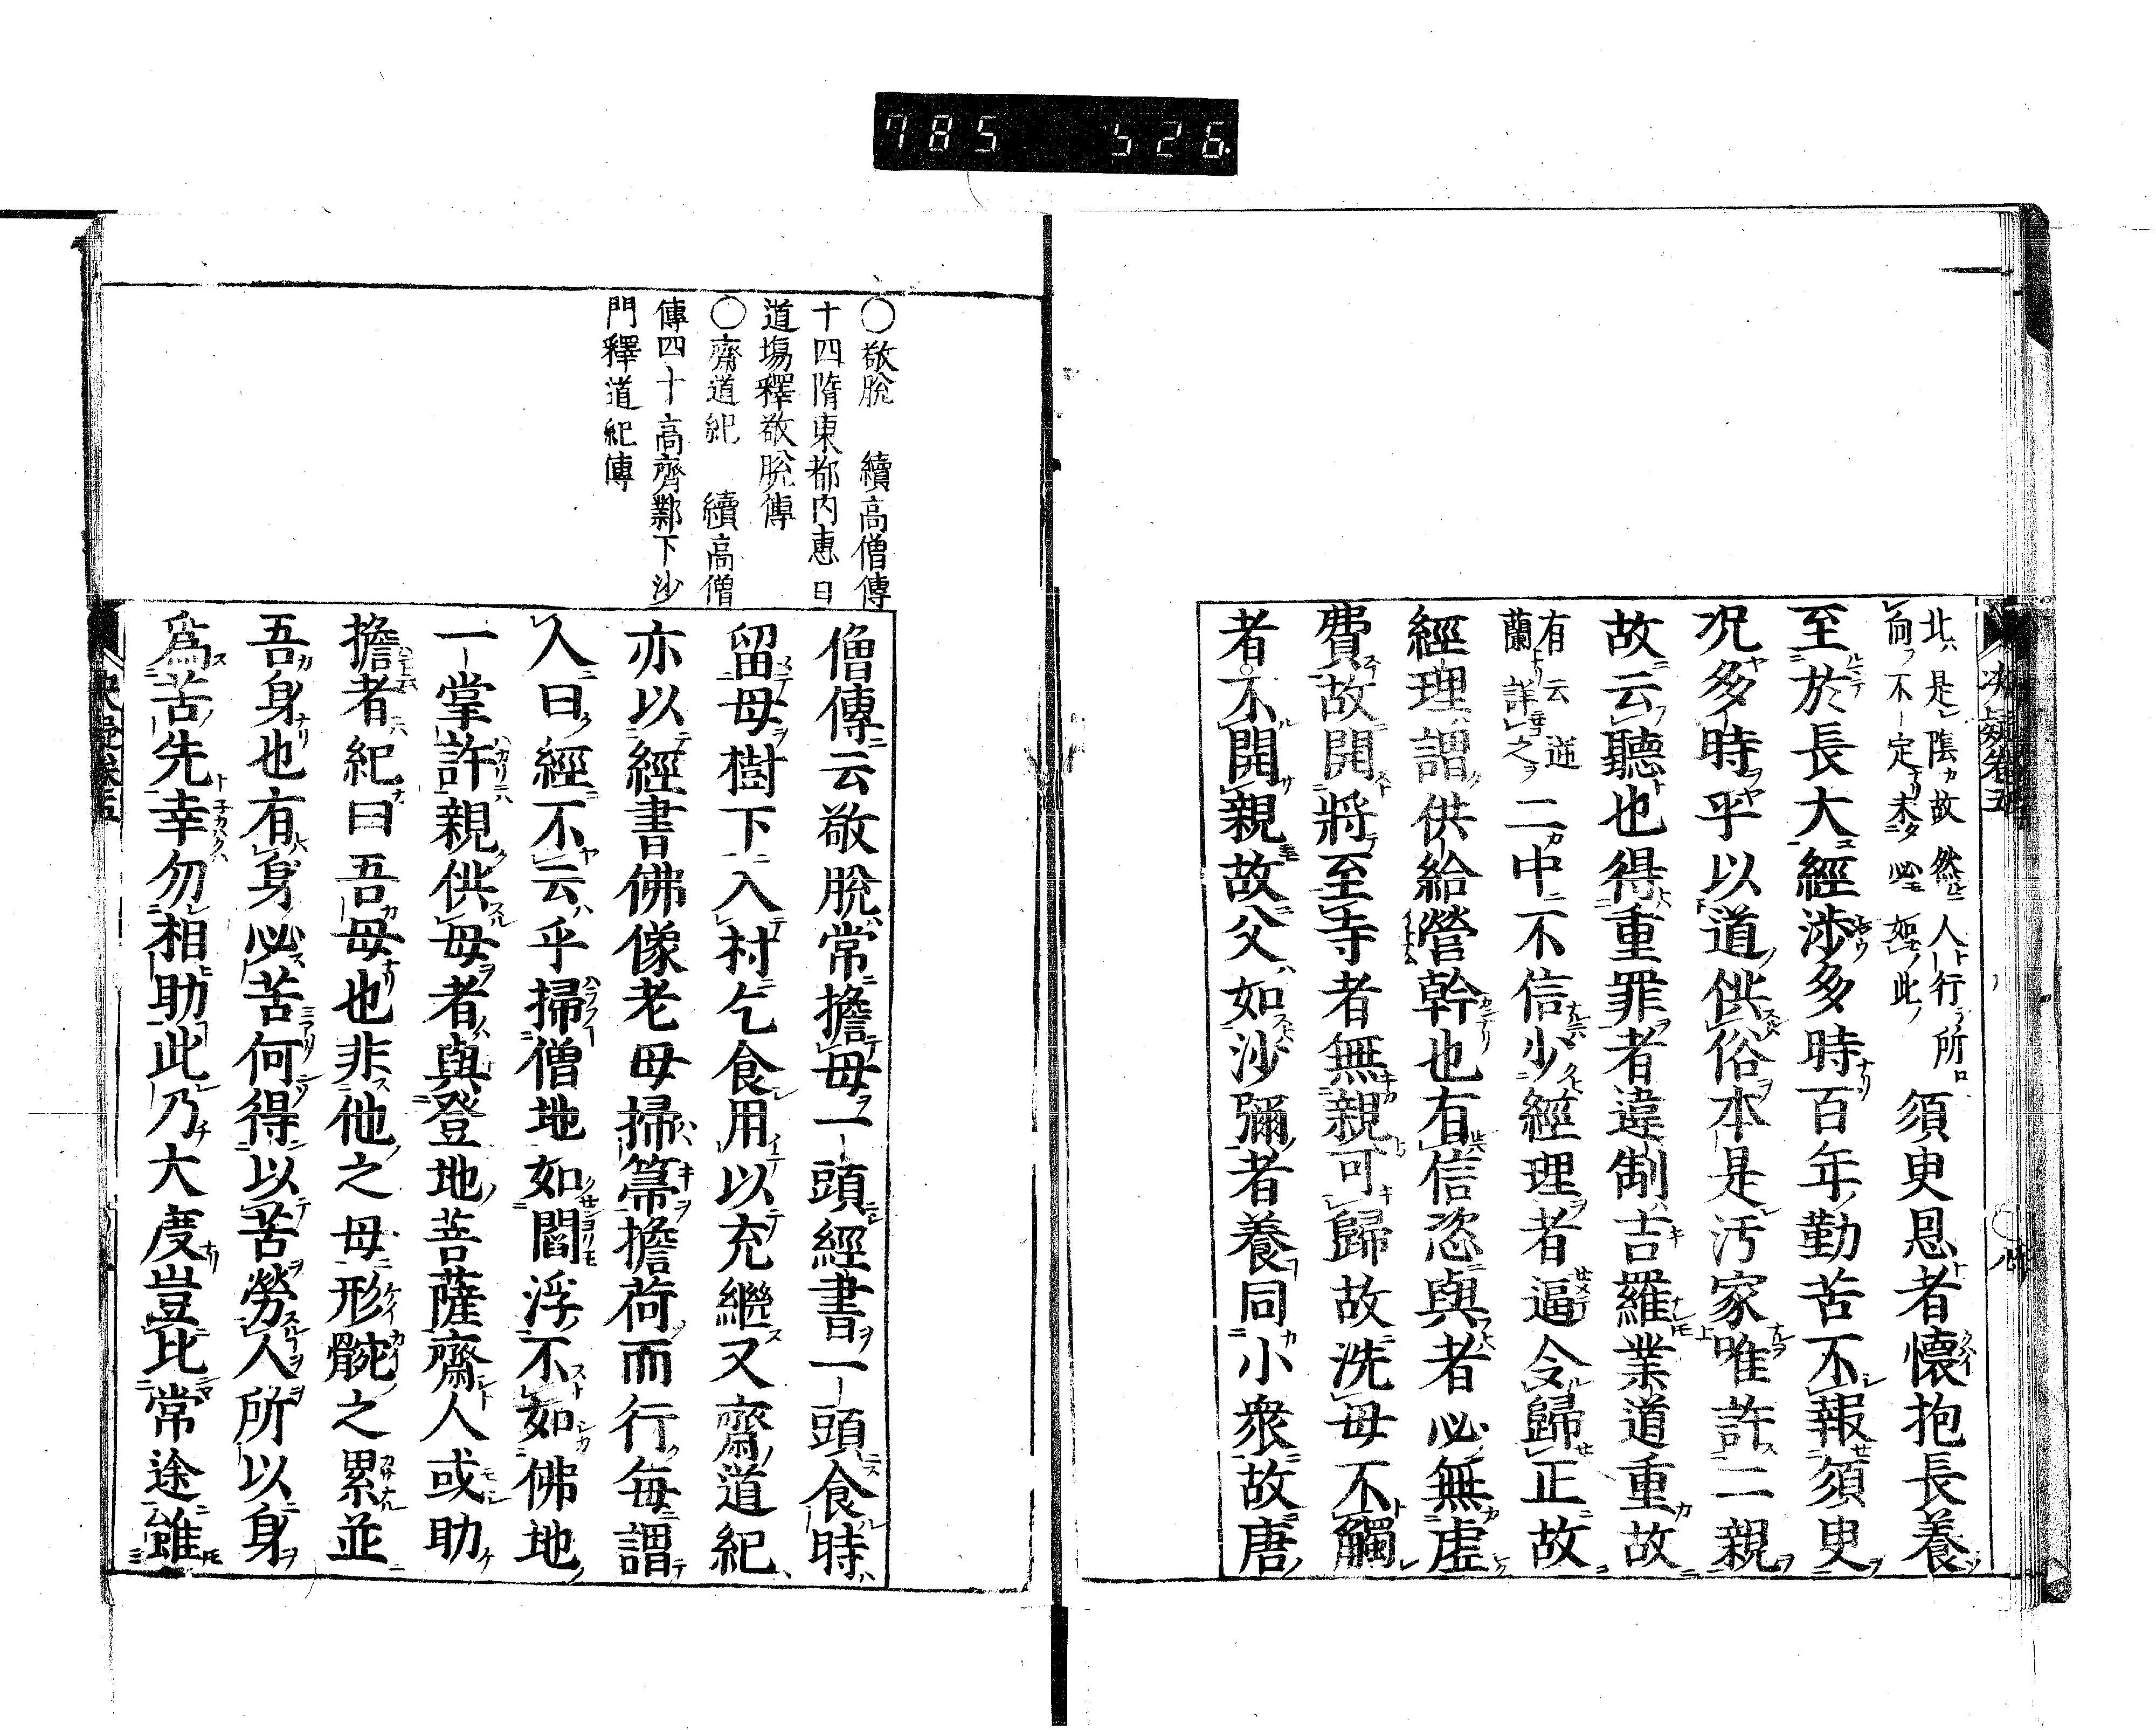 785 526
决疑卷五
北是陰故然人行所
向不定未必如此
須臾恩者懷抱長養
至於長大經渉多時百年勤苦不報須臾
况多時乎以道供俗本是汚家唯許二親
故云聽也得重罪者違制吉羅業道重故
有云逝
蘭詳之
二中不信少經理者逼令歸正故
經理謂供給營幹也有信恣與者必無虚
費故開將至寺者無親可歸故洗母不觸
者不開親故父如沙彌者養同小衆故唐
○敬脫 續高僧傳
十四隋東都内惠日
道塲釋敬脫傳
○齋道紀 續高僧
傳四十高齊鄴下沙
門釋道紀傳
僧傳云敬脫常擔母一頭經書一頭食時
留母樹下入村乞食用以充繼又齋道紀
亦以經書佛像老母掃箒擔荷而行毎謂
人曰經不云乎掃僧地如閻浮不如佛地
一掌許親供母者與登地菩薩齋人或助
擔者紀曰吾母也非他之母形骸之累並
吾身也有身必苦何得以苦勞人所以身
爲苦先幸勿相助此乃大度豈比常途雖